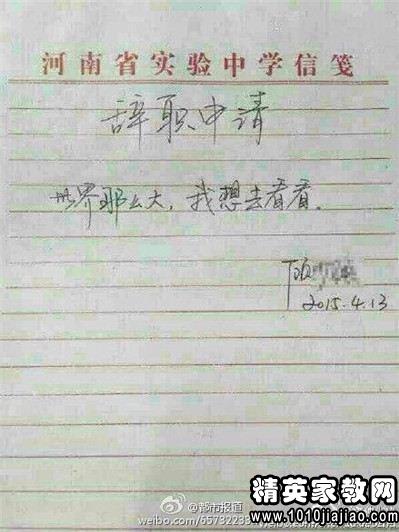 河南省实验中学信笺
辞职申请
世界那么大，我想去看看。
顾
2015.4.13
@都市报道
weibo.com/65732233
精英家教网
www.1010jiajiao.com